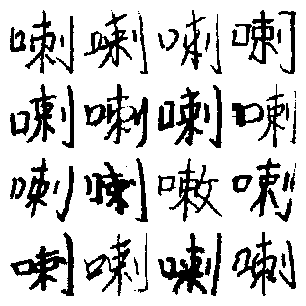 喇喇喇喇
喇喇喇喇
喇喇嗷喇
喇喇喇喇